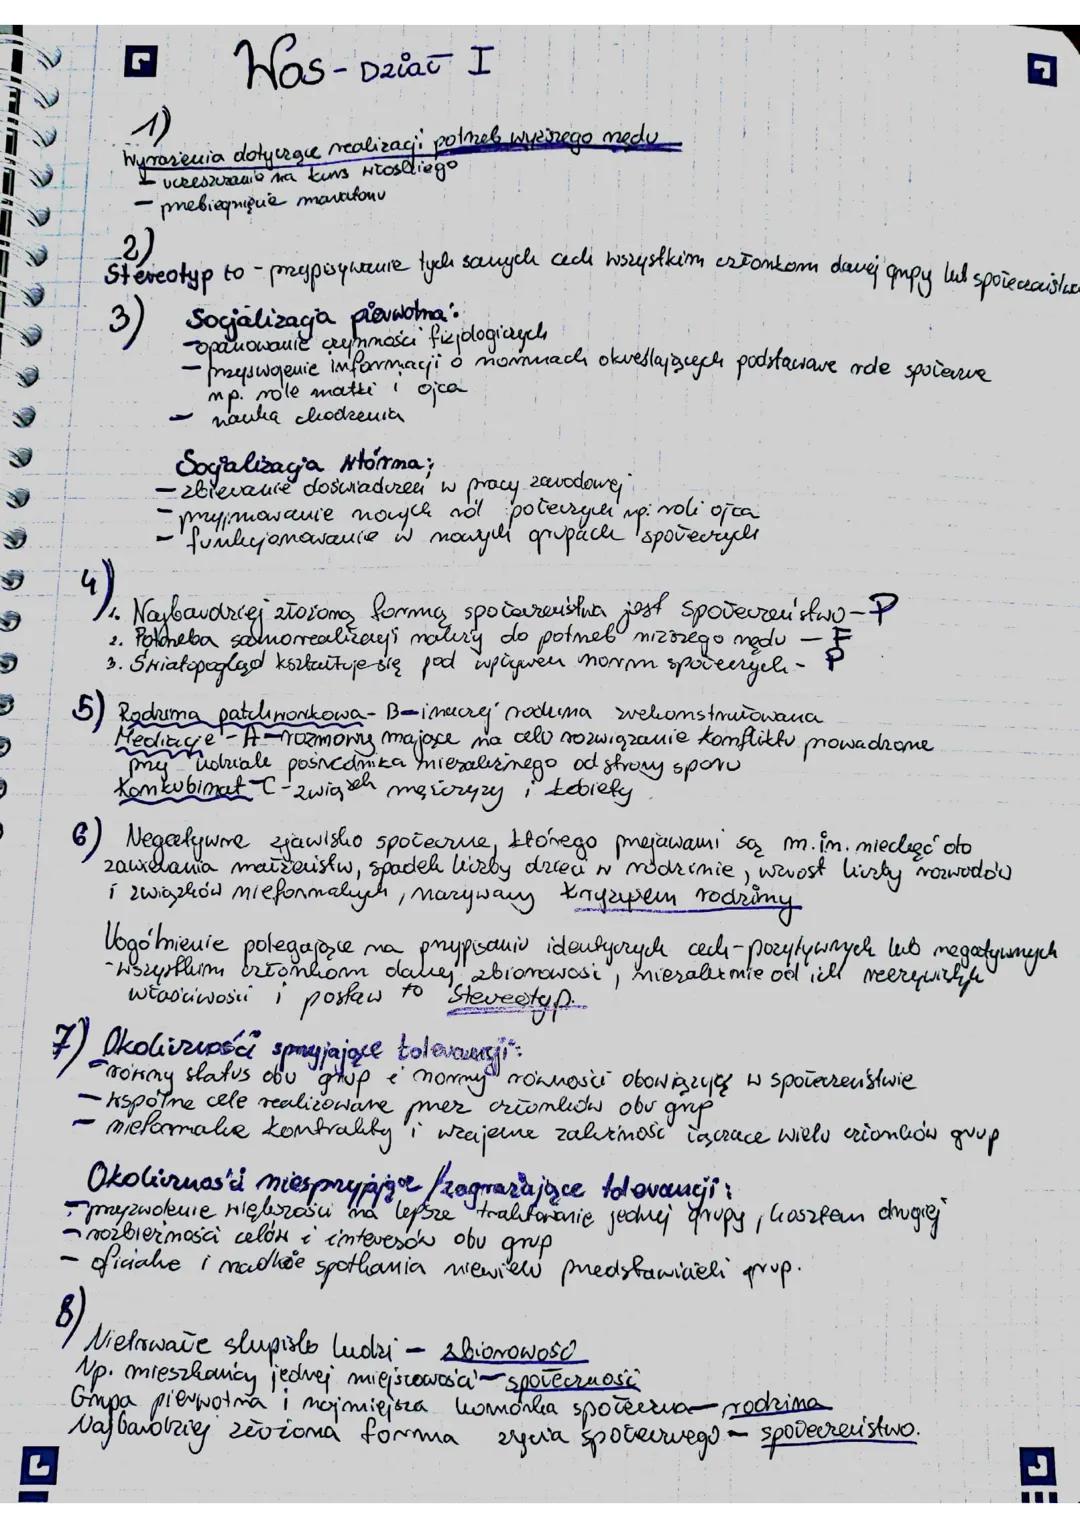 Wos - Dział I
1)
Wyrażenia dotyczące realizacji potrzeb wyższego rzędu
- uczęszczanie na kurs włoskiego
- przebiegnięcie maratonu
2)
Stereotyp to - przypisywanie tych samych cech wszystkim członkom danej grupy lub społeczeństwa
3) Socjalizacja pierwotna:
- opanowanie czynności fizjologicznych
- przyswojenie informacji o normach określających podstawowe role społeczne
np. role matki i ojca
- nauka chodzenia
Socjalizacja wtórna:
- zbieranie doświadczeń w pracy zawodowej
- przyjmowanie nowych ról połecznych np. roli ojca
- funkcjonowanie w nowych grupach społecznych
4)
1. Najbardziej złożoną formą społeczeństwa jest społeczeństwo - P
2. Potrzeba samorealizacji należy do potrzeb niższego rzędu - F
3. Światopogląd kształtuje się pod wpływem norm społecznych - P
5) Rodzina patchworkowa - B - inaczej rodzina zrekonstruowana
Mediacje - A - rozmowy mające na celu rozwiązanie konfliktu prowadzone
przy udziale pośrednika niezależnego od strony sporu
Konkubinat - C - związek mężczyzy i kobiety
6) Negatywne zjawisko społeczne, którego przejawami są m.in. niechęć do
zawierania małżeństw, spadek liczby dzieci w rodzinie, wzrost liczby rozwodów
i związków nieformalnych, nazywany kryzysem rodziny
Uogólnienie polegające na przypisaniu identycznych cech - pozytywnych lub negatywnych
- wszystkim członkom danej zbiorowości, niezależnie od ich
właściwości i postaw to Stereotyp.
7) Okoliczności sprzyjające tolerancji:
- równy status obu grup i normy równości obowiązujące w społeczeństwie
- wspólne cele realizowane przez członków obu grup
- nieformalne kontrakty i wzajemne zależność łączące wielu członków grup
Okoliczności niesprzyjające / zagrażające tolerancji:
- przyzwolenie większości na lepsze traktowanie jednej grupy, kosztem drugiej
- rozbieżności celów i interesów obu grup
- oficialne i rzadkie spotkania niewielu przedstawicieli grup.
8)
Nietrwałe skupisko ludzi - zbiorowość
Np. mieszkańcy jednej miejscowości - społeczność
Grupa pierwotna i najmniejsza komórka społeczna - rodzina
Najbardziej złożona forma życia społecznego - społeczeństwo.